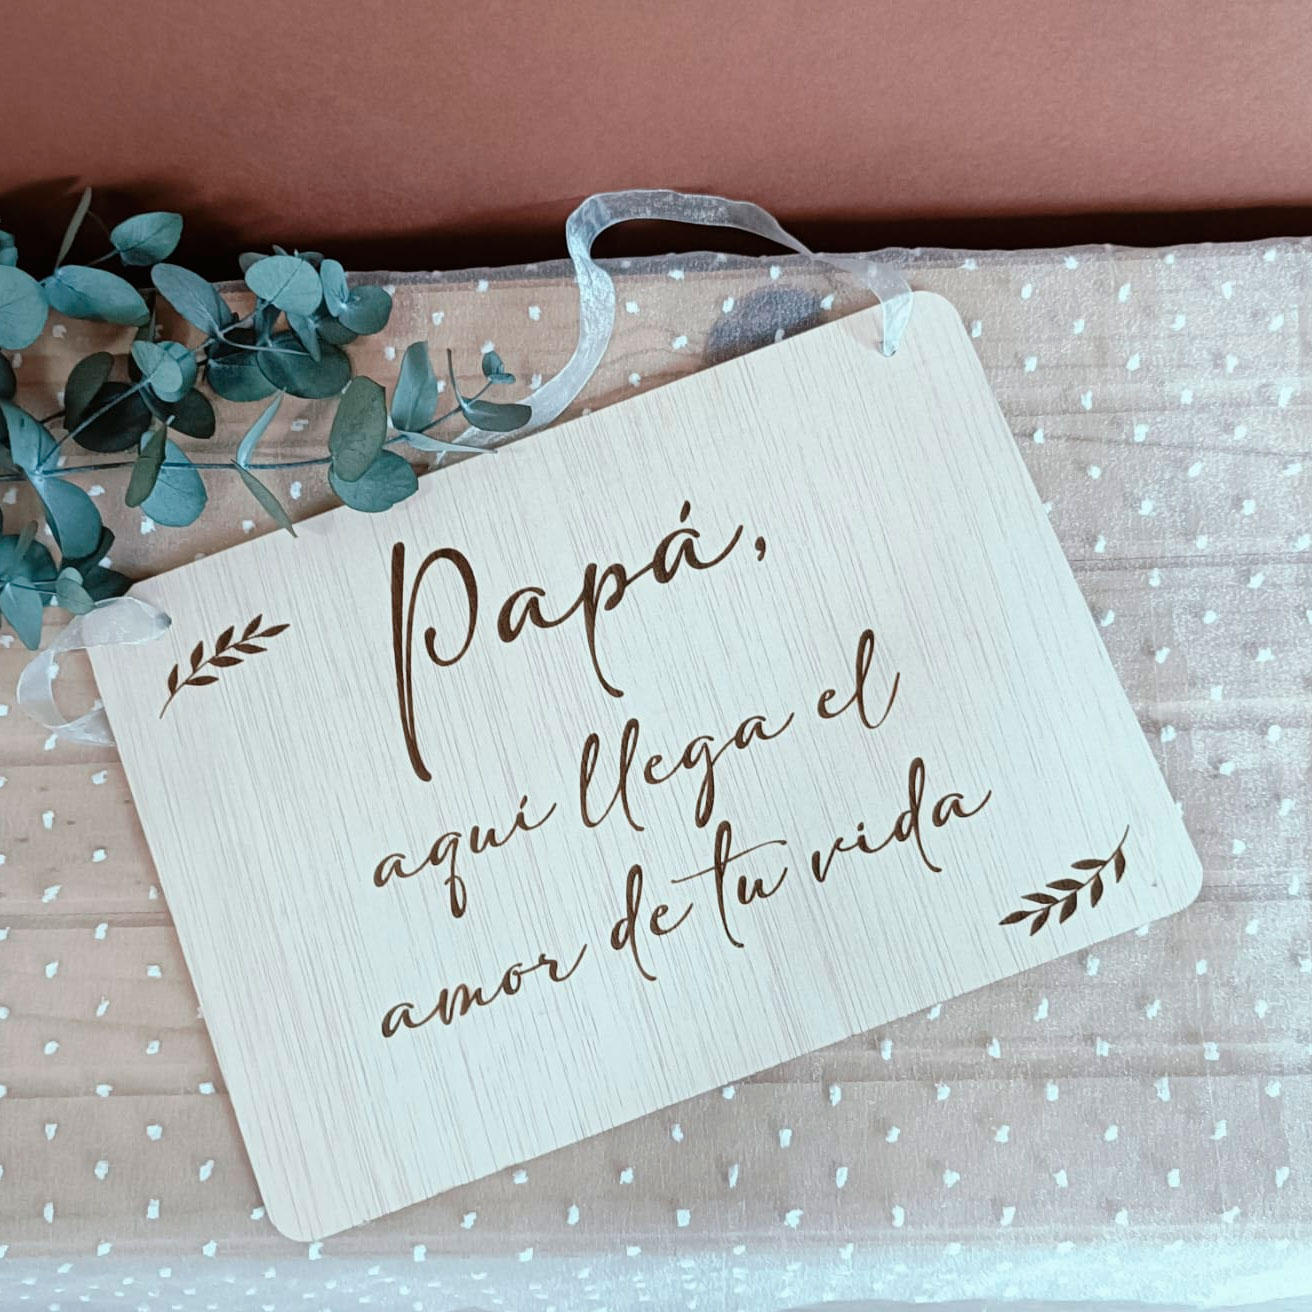 Papá,
aquí llega el
amor de tu vida